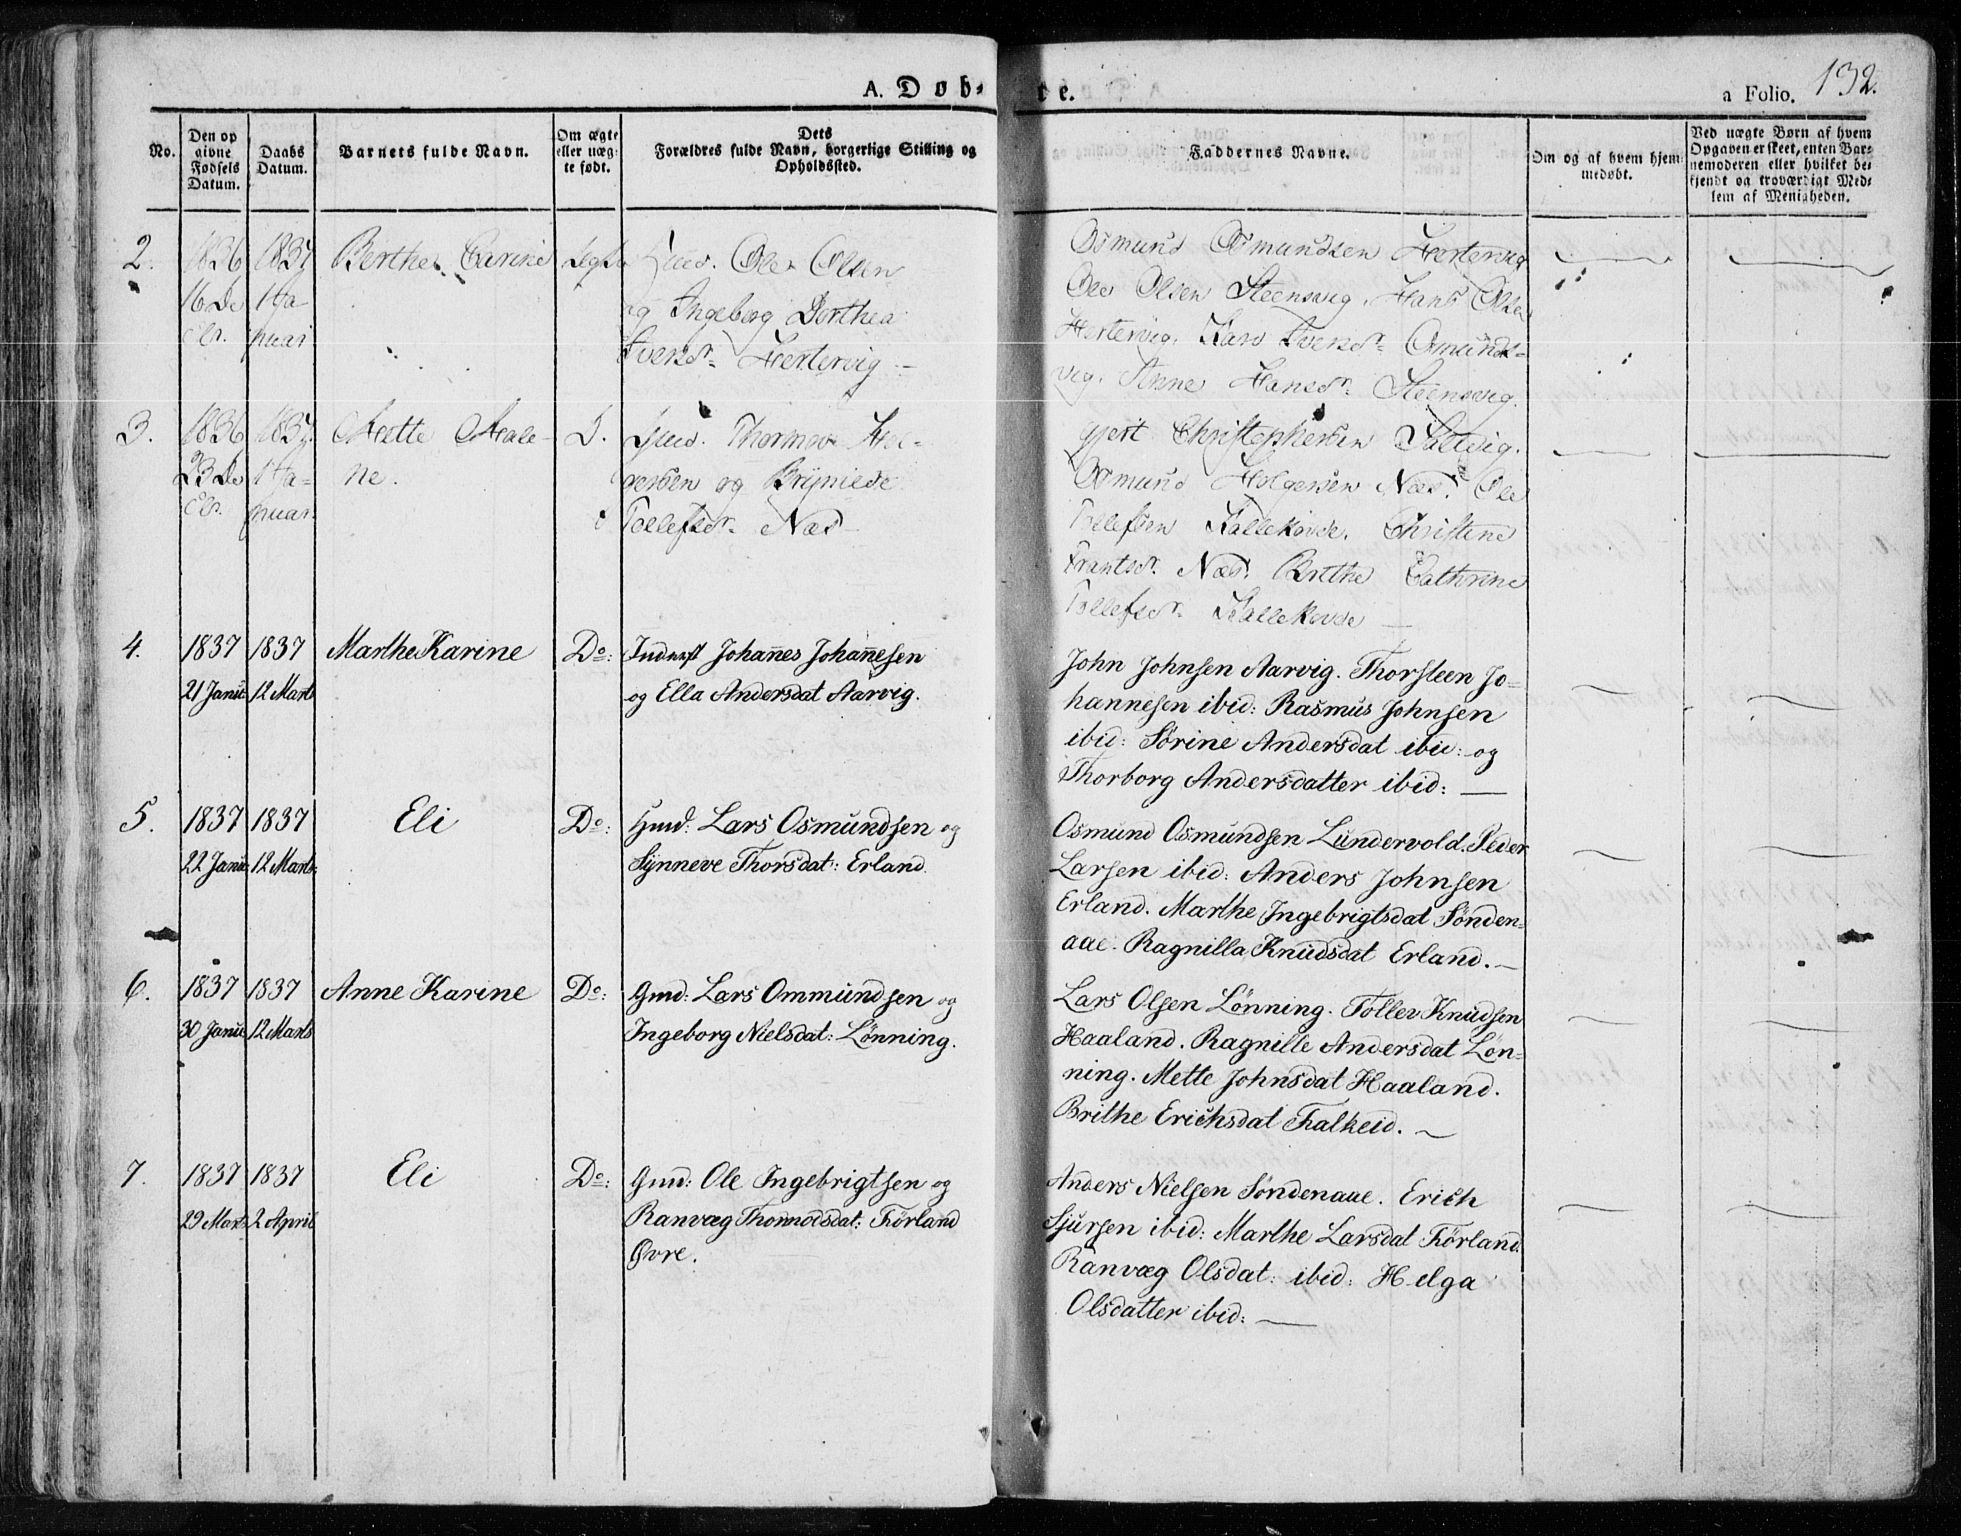 A. Døb-
te.
a Folio. 132.
No.
Den op
givne
Fødsels
Datum.
Daabs
Datum.
Barnets fulde Navn.
Om ægte
eller uæg-
te født.
Dets
Forældres fulde Navn, borgerlige Stilling og
Opholdssted.
Faddernes Navne.
Om og af hvem hjem-
medøbt.
Ved uægte Børn af hvem
Opgaven er skeet, enten Bar-
nemoderen eller hvilket be-
kjendt og troværdigt Med-
lem af Menigheden.
2.
1836
16 De
cbr.
1837
1 Ja-
nuar
Berthe Carine
Ole Olsen
og Ingeborg Dorthea
Iversdr. Hertervig
Osmund Osmundsen Hertervig
Ole Olsen Steensvig. Hans Olsen
Hertervig. Kari Iversdr. Osmunds-
vig. Anne Hansdr. Steensvig.
3.
1836
23 De
cbr.
1837
1 Ja-
nuar.
Mette Male-
ne.
D.
Thormod Hol-
gersen og Brynilde
Tollefsdr. Næs
Gjert Christophersen Saltvig.
Osmund Holgersen Næs. Ole
Tollefsen Kallekodt. Christine
Frantsdr. Næs. Brithe Cathrine
Tollefsdr.
4.
1837
21 Janu:
1837
12 Marts
Marthe Karine
Do:
Inderst Johannes Johannesen
og Ella Andersdat Aarvig.
John Johnsen Aarvig. Thorsteen Jo-
hannesen ibid: Rasmus Johnsen
ibid: Sørine Andersdat ibid: og
Thorborg Andersdatter ibid:
5.
1837
22 Janu:
1837
12 Marts
Eli
Do:
Hmd: Lars Osmundsen og
Synneve Thorsdat: Erland.
Osmund Osmundsen Lundervold. Peder
Larsen ibid: Anders Johnsen
Erland. Marthe Ingebrigtsdat Sønden-
aae. Ragnilla Knudsdat Erland.
6.
1837
30 Janu:
1837
12 Marts
Anne Karine
Do:
Gmd: Lars Ommundsen og
Ingeborg Nielsdat: Lønning.
Lars Olsen Lønning. Tollev Knudsen
Haaland. Ragnille Andersdat Løn-
ning. Mette Johnsdat Haaland.
Brithe Erichsdat Falkeid.
7.
1837
29 Marts
1837
2 April
Eli
Do:
Gmd: Ole Ingebrigtsen og
Ranvæg Thormodsdat: Førland
Øvre.
Anders Nielsen Søndenaae. Erich
Sjursen ibid: Marthe Larsdat Førland.
Ranvæg Olsdat: ibid: Helga
Olsdatter ibid: